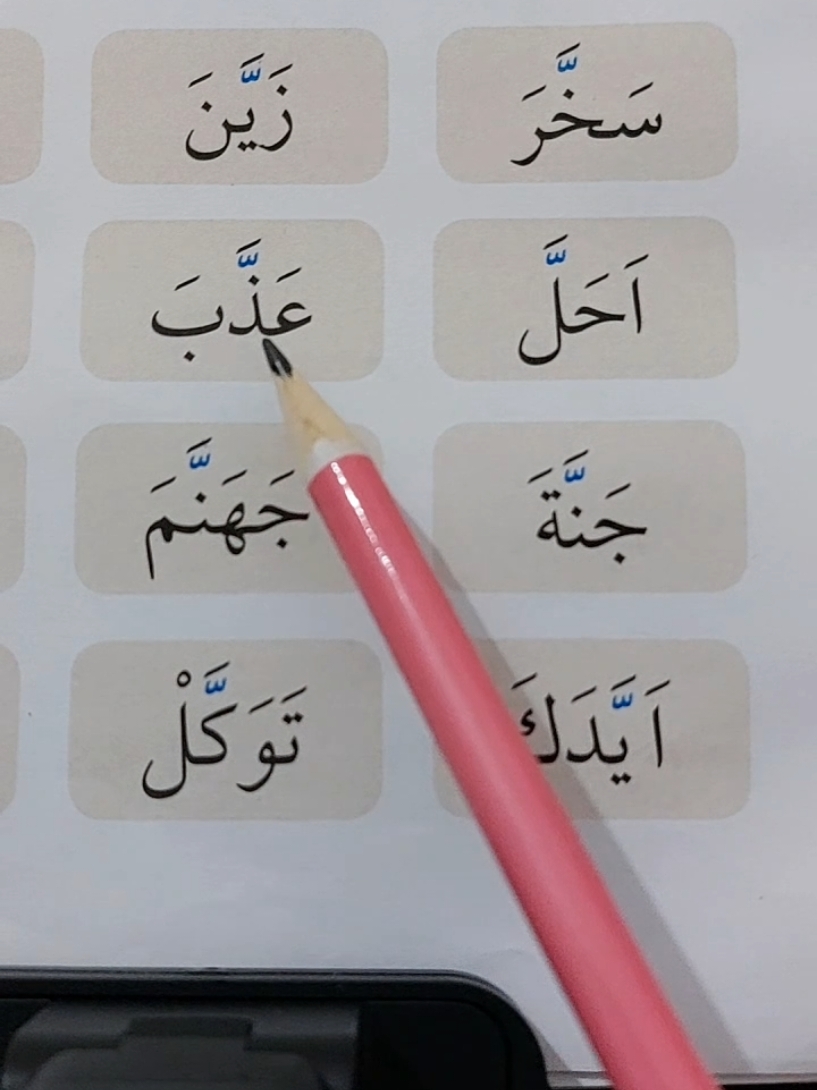 سَخَّرَ زَيَّنَ
اَحَلَّ عَذَّبَ
جَنَّةَ جَهَنَّمَ
اَيَّدَكَ تَوَكَّلْ